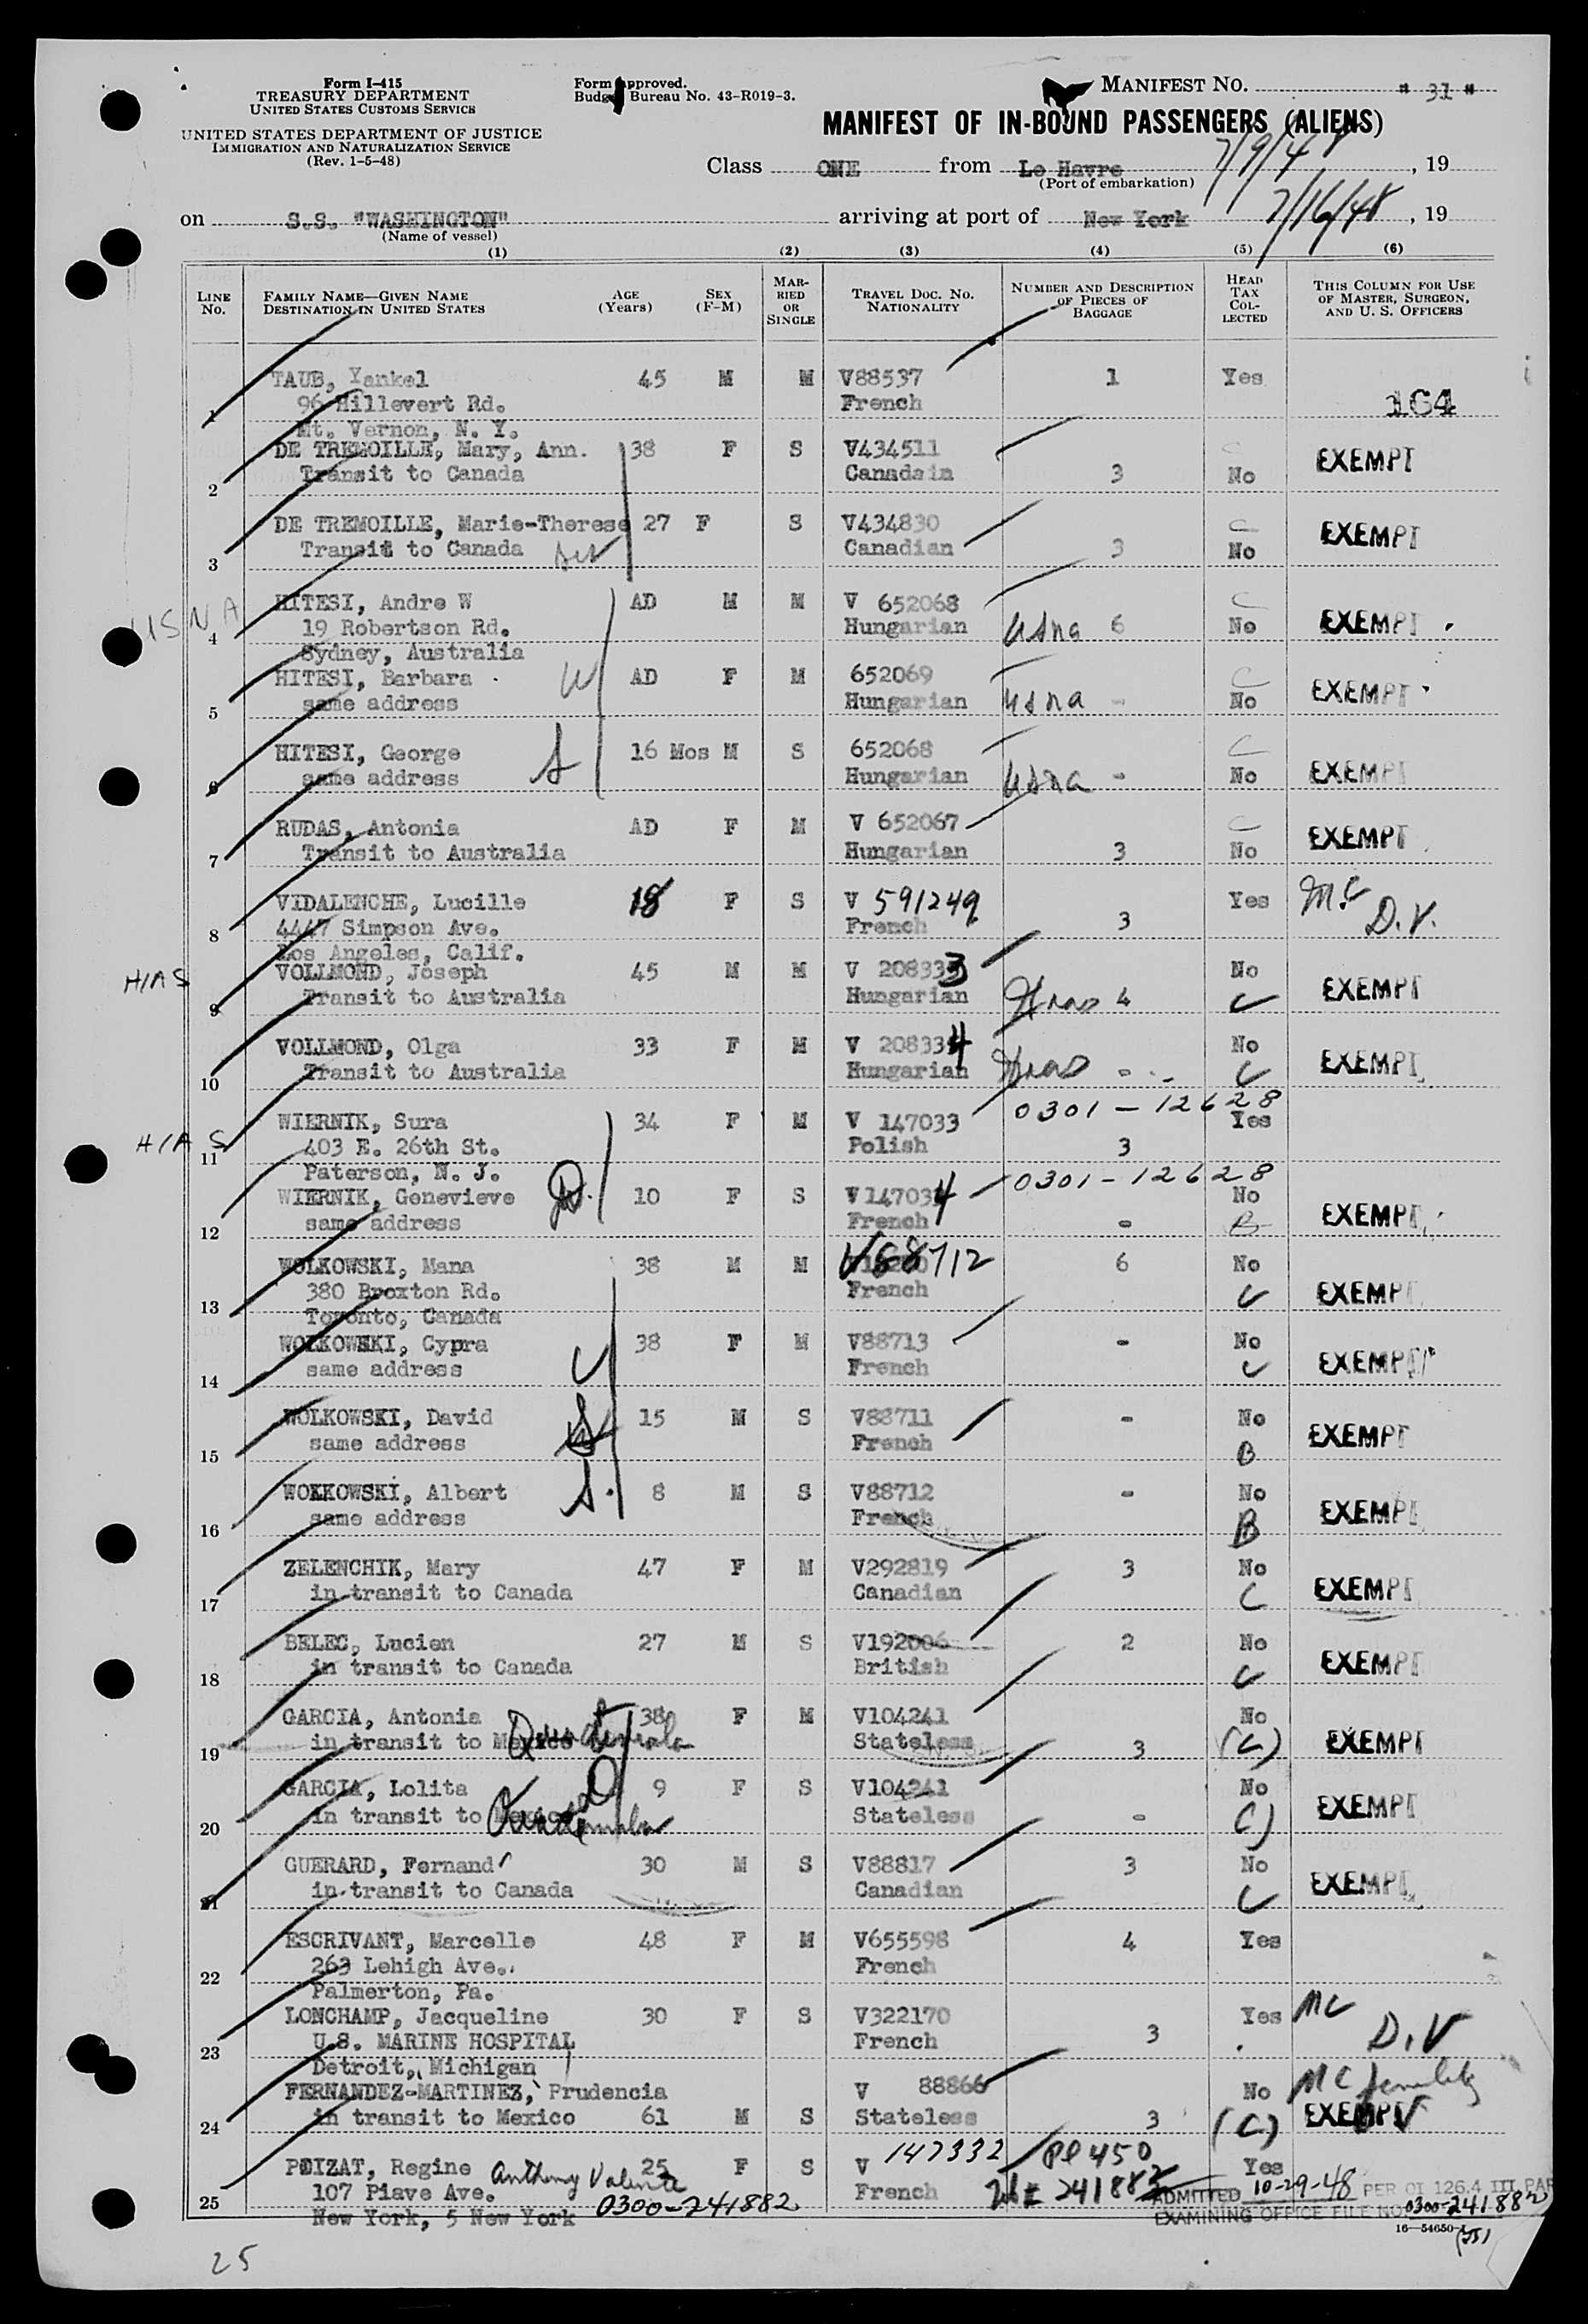 Form I-415
TREASURY DEPARTMENT
UNITED STATES CUSTOMS SERVICE
UNITED STATES DEPARTMENT OF JUSTICE
IMMIGRATION AND NATURALIZATION SERVICE
(Rev. 1-5-48)
Form approved.
Budget Bureau No. 43-R019-3.
MANIFEST NO. " 31 "
MANIFEST OF IN-BOUND PASSENGERS (ALIENS)
Class ONE from Le Havre 7/9/48, 19
(Port of embarkation)
on S.S. "WASHINGTON" arriving at port of New York 7/16/48, 19
(Name of vessel)
(1) (2) (3) (4) (5) (6)
LINE NO. FAMILY NAME—GIVEN NAME DESTINATION IN UNITED STATES AGE (Years) SEX (F-M) MARRIED OR SINGLE TRAVEL DOC. NO. NATIONALITY NUMBER AND DESCRIPTION OF PIECES OF BAGGAGE HEAD TAX COLLECTED THIS COLUMN FOR USE OF MASTER, SURGEON, AND U. S. OFFICERS
TAUB, Yankel 45 M M V88537 1 Yes
1 96 Hillevert Rd. French 164
Mt. Vernon, N. Y.
DE TREMOILLE, Mary, Ann. 38 F S V434511 C EXEMPT
2 Transit to Canada Canadain 3 No
DE TREMOILLE, Marie-Therese 27 F S V434830 C EXEMPT
3 Transit to Canada Canadian 3 No
USNA HITESI, Andre W AD M M V 652068 C
4 19 Robertson Rd. Hungarian usna 6 No EXEMPT
Sydney, Australia
HITESI, Barbara AD F M 652069 C
5 same address Hungarian usna - No EXEMPT
HITESI, George 16 Mos M S 652068 C
6 same address Hungarian usna - No EXEMPT
RUDAS, Antonia AD F M V 652067 C EXEMPT
7 Transit to Australia Hungarian 3 No
VIDALENCHE, Lucille 18 F S V 591249 Yes M.C
8 4447 Simpson Ave. French 3 D.V.
Los Angeles, Calif.
HIAS VOLLMOND, Joseph 45 M M V 208333 No
9 Transit to Australia Hungarian 4 C EXEMPT
VOLLMOND, Olga 33 F M V 208334 No
10 Transit to Australia Hungarian - C EXEMPT
0301-12628
HIAS WIERNIK, Sura 34 F M V 147033 Yes
11 403 E. 26th St. Polish 3
Paterson, N. J. 0301-12628
WIERNIK, Genevieve D. 10 F S V147034 No
12 same address French - B EXEMPT
WOLKOWSKI, Mana 38 M M V88712 6 No
13 380 Broxton Rd. French C EXEMPT
Toronto, Canada
WOLKOWSKI, Cypra 38 F M V88713 - No
14 same address French C EXEMPT
WOLKOWSKI, David 15 M S V88711 - No
15 same address S French B EXEMPT
WOLKOWSKI, Albert S. 8 M S V88712 - No
16 same address French B EXEMPT
ZELENCHIK, Mary 47 F M V292819 3 No
17 in transit to Canada Canadian C EXEMPT
BELEC, Lucien 27 M S V192006 2 No
18 in transit to Canada British C EXEMPT
GARCIA, Antonia 38 F M V104241 No
19 in transit to Mexico Guatemala Stateless 3 (C) EXEMPT
GARCIA, Lolita D 9 F S V104241 No
20 in transit to Mexico Guatemala Stateless - C) EXEMPT
GUERARD, Fernand 30 M S V88817 3 No
21 in transit to Canada Canadian C EXEMPT
ESCRIVANT, Marcelle 48 F M V655598 4 Yes
22 263 Lehigh Ave. French
Palmerton, Pa.
LONCHAMP, Jacqueline 30 F S V322170 Yes MC
23 U.S. MARINE HOSPITAL French 3 D.V
Detroit, Michigan
FERNANDEZ-MARTINEZ, Prudencia V 88866 No MC
24 in transit to Mexico 61 M S Stateless 3 (C) EXEMPT
POIZAT, Regine Anthony Valente 25 F S V 147332 Yes
25 107 Piave Ave. French 241882
New York, 5 New York 0300-241882
ADMITTED 10-29-48 PER OI 126.4 III PAR
EXAMINING OFFICE FILE NO. 0300-241882
16—54650-1
25